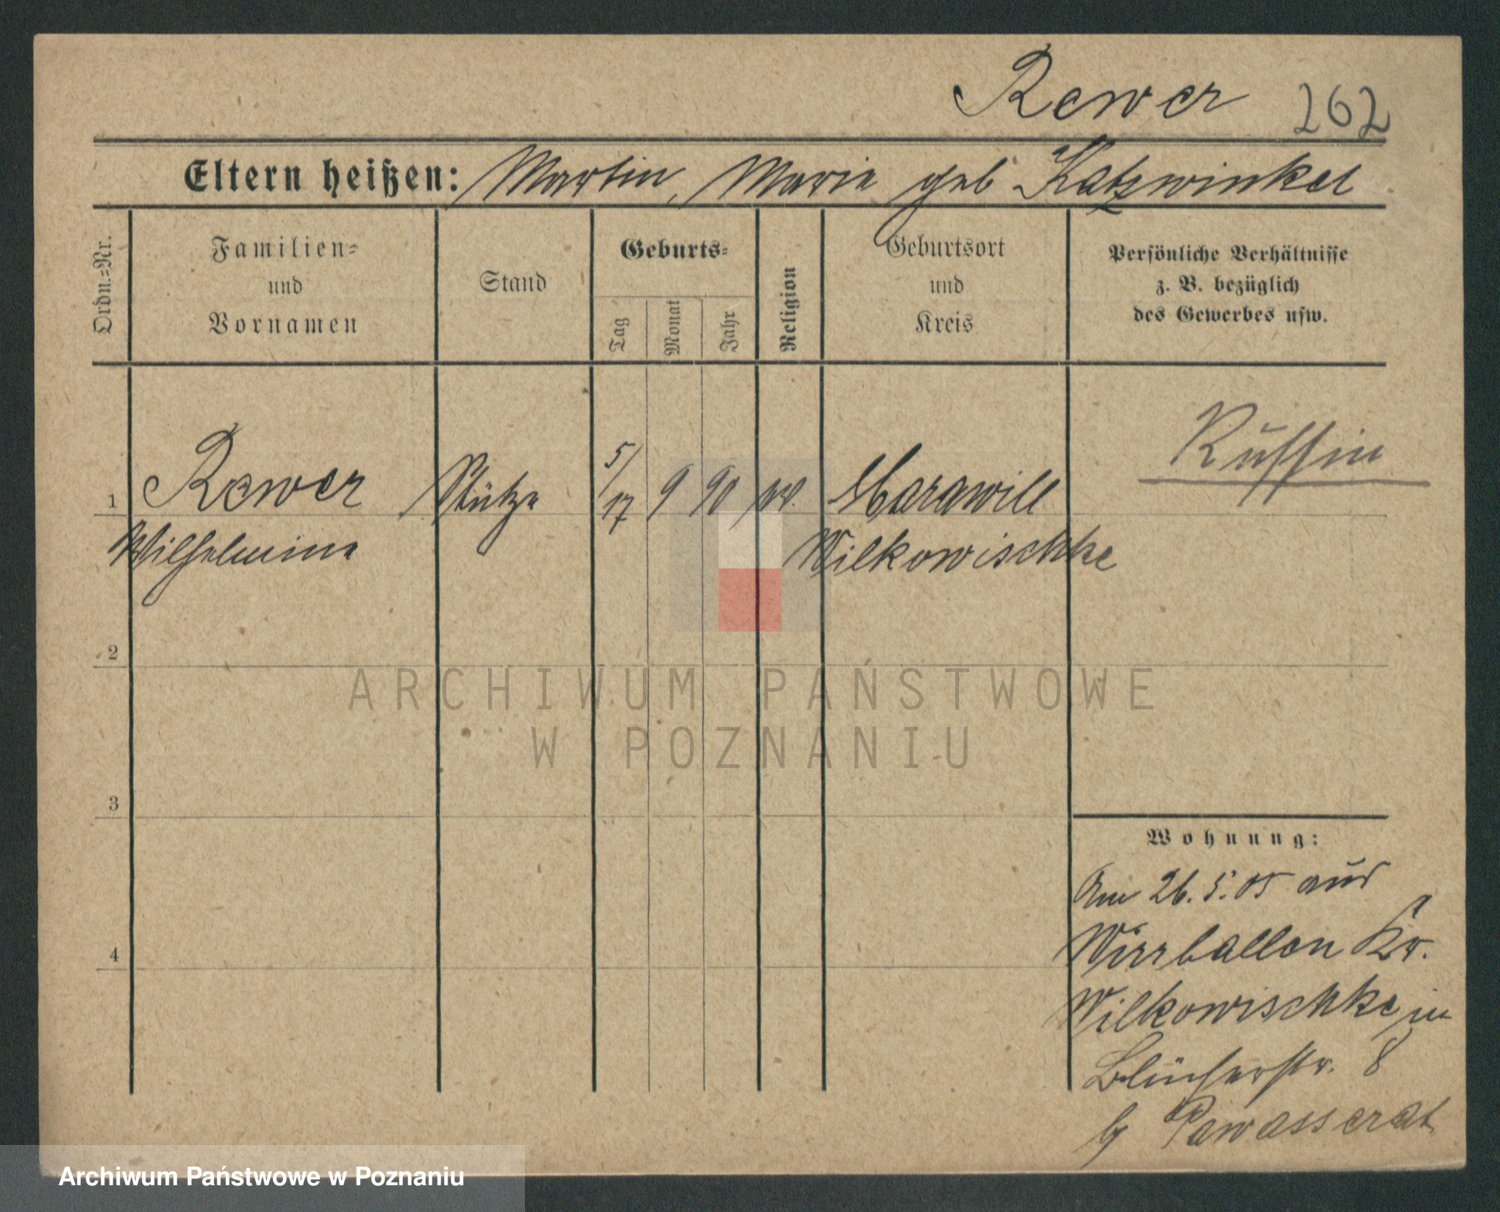 Rewer 262
Eltern heißen: Martin, Marie geb Katzwinkel
Ordn.=Nr.
Familien=
und
Vornamen
Stand
Geburts=
Tag
Monat
Jahr
Religion
Geburtsort
und
Kreis
Persönliche Verhältnisse
z. B. bezüglich
des Gewerbes usw.
Russin
1 Rewer Stütze 5/17 9 90 ev. Marawill
Wilhelmine Wilkowischke
2
3
4
Wohnung:
Am 26. 5. 05 aus
Wirrballen Kr.
Wilkowischke in
Blücherstr. 8
b/ Pawasserat
ARCHIWUM PAŃSTWOWE
W POZNANIU
Archiwum Państwowe w Poznaniu